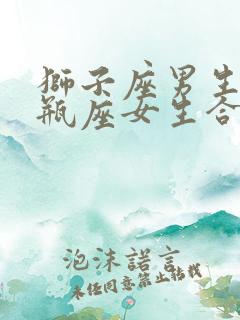 獅子座男生
瓶座女生合
泡沫諾言
未任同意禁止轉載